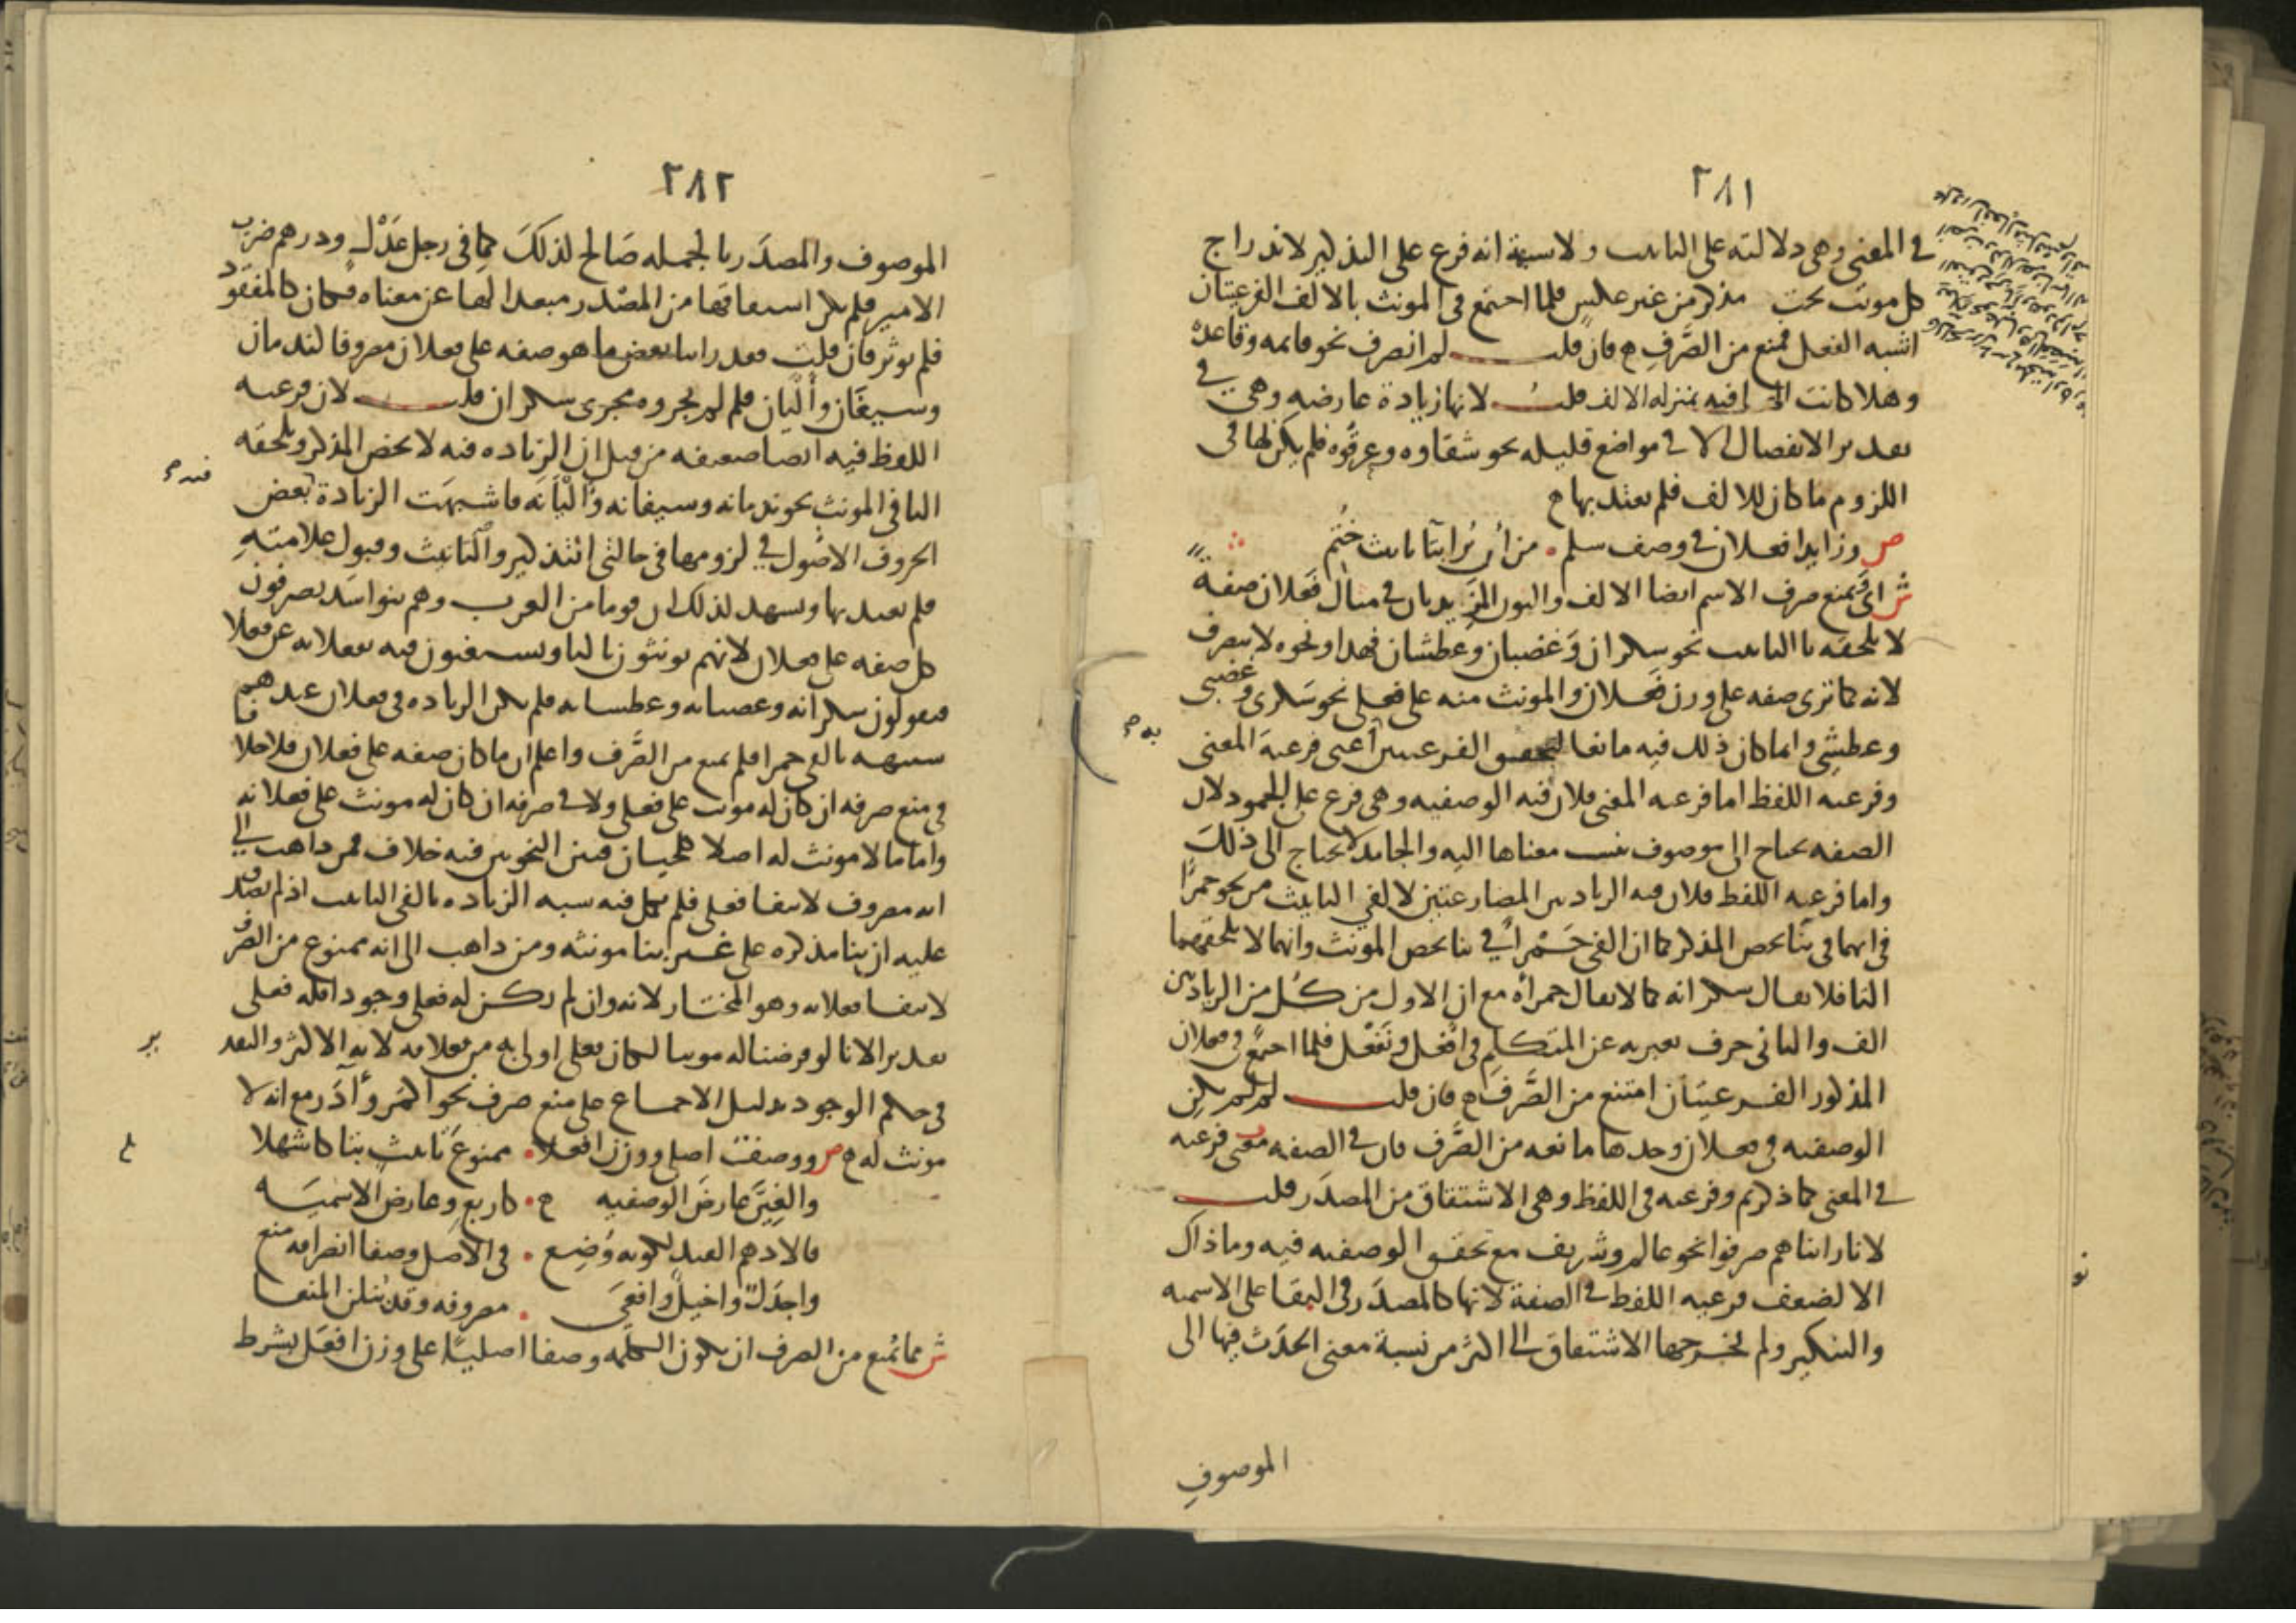 ٢٨١
في المعنى وهى دلالته على التانيث ولا شبهة انه فرع على التذكير لاندراج
كل مونث تحت مذكر من غير عكس فلما اجتمع فى المونث بالالف الفرعيتان
اشبه الفعل فمنع من الصَّرفِ ح فان قلت لم انصرف نحو قايمه وقاعدة
وهلا كانت التا فيه بمنزله الالف قلتُ لانها زيادة عارضه وهي في
تقدير الانفصال الا في مواضع قليله نحو شقاوه وعرقُوه فلم يكن لها فى
اللزوم ما كان للالف فلم يعتد بها ح
ص وزايدا فعلان في وصف سلم . من أن يُرى بتا تانيث خُتم
ش اى ويمنع صرف الاسم ايضا الالف والنون المزيدتان في مثال فَعلان صفة
لا تلحقه تا التانيث نحو سكران وَغضبان وَعطشان فهذا ونحوه لا ينصرف
لانه كما ترى صفه على وزن فَعلان والمونث منه على فعلى نحو سَكرى وغضبى
وعطشِى وانما كان ذلك فيه مانعا لتحقق الفرعيتين أعنى فرعية المعنى
وفرعيه اللفظ اما فرعيه المعنى فلان فيه الوصفيه وهى فرع على الجمود لان
الصفه تحتاج الى موصوف ينسب معناها اليه والجامد لا يحتاج الى ذلك
واما فرعيه اللفظ فلان فيه الزيادتين المضارعتين لالفي التانيث من نحو حمرا
في انهما فى بنا يخص المذكر كما ان الفى حَمْرا في بنا يخص المونث وانهما لا تلحقهما
التا فلا يقال سكرانه كما لا يقال حمرأه مع ان الاول من كُل من الزيادتين
الف والثانى حرف يعبر به عن المتكلِم فى افعل ونَفعْل فلما اجتمع فى فعلان
المذكور الفرعيتان امتنع من الصَّرف ح فان قلت لم لم تكن
الوصفيه فى فعلان وحدها مانعه من الصَّرف فان في الصفه فرعيه
في المعنى كما ذكرتم وفرعيه فى اللفظ وهى الاشتقاق من المصدَر قلت
لانا راينا هم صرفوا نحو عالم وشريف مع تحقق الوصفيه فيه وما ذاك
الا لضعف فرعيه اللفظ في الصفة لانها كالمصدَر فى البقا على الاسميه
والتنكير ولم يخرجها الاشتقاق الى اكثر من نسبة معنى الحدَث فيها الى
الموصوفِ
٢٨٢
الموصوف والمصدَر بالجمله صَالح لذلكَ كما فى رجل عَدْل ودرهم ضرب
الامير فلم يكن اشتقاقها من المصْدر مبعدا لها عن معناه فكان كالمفقود
فلم يوثر فان قلت فقد راينا بعض ما هو صفه على فعلان مصروفا كندمان
وسيفَان وأَلْيَان فلم لم يجروه مجرى سكران قلت لان فرعيه
اللفظ فيه ايضا ضعيفه من قبل ان الزياده فيه لا تخص المذكر وتلحقه
التا فى المونث نحو ندمانه وسيفانه وأَلْيَانَه فاشبهَت الزيادة بعض
الحروف الاصُول في لزومها فى حالتى التذكير والتانيث وقبول علامتهِ
فلم يعتد بها ويشهد لذلك ان قوما من العرب وهم بنو اسَد يصرفون
كل صفه على فعلان لانهم يونثونه بالتا ويستغنون فيه بفعلانه عن فعلا
فيقولون سكرانه وغضبانه وعطشانه فلم تكن الزياده فى فعلان عندهم
شبيهه بالفى حمرا فلم تمنع من الصَّرف واعلم ان ما كان صفه على فعلان فلا خلاف
فى منع صرفه ان كان له مونث على فعلى ولا في صرفه ان كان له مونث على فعلانه
واما ما لا مونث له اصلا كلحيان فبين النحويين فيه خلاف فمن ذاهب الى
انه مصروف لانتفا فعلى فلم تكمل فيه شبه الزياده بالفى التانيث اذ لم يصدق
عليه ان بنا مذكره على غير بنا مونثه ومن ذاهب الى انه ممنوع من الصَّرف
لانتفا فعلانه وهو المختار لانه وان لم يكن له فعلى وجودا فله فعلى
تقدير الانا لو فرضنا له مونثا لكان فعلى اولى به من فعلانه لانه الاكثر والتقدير
فى حكم الوجود بدليل الاجماع على منع صرف نحو اكمَر وأدَر مع انه لا
مونث له ح ص ووصفٌ اصلى ووزن افعلا . ممنوعَ تانيث بتا كاشهلا
والغِيَنَّ عارضَ الوصفيه . كاربعٍ وعارض الاسميَه
فالادهم القيد لكونه وُضِع . فى الاصل وصفا انصرافه منع
واجدَلٌ واخيلٌ وافعىَ . مصروفه وقد ينلن المنعا
ش مما يمنع من الصرف ان تكون الكلمه وصفا اصليًا على وزن افعَل بشرط